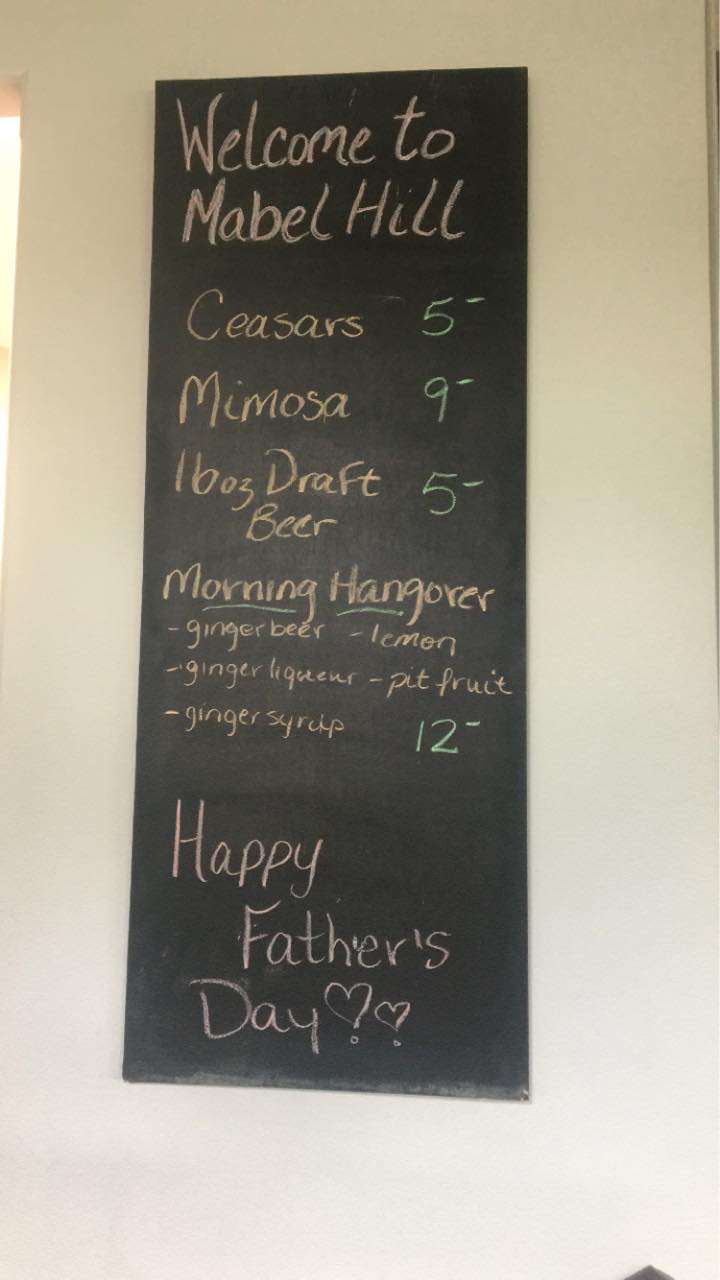 Welcome to
Mabel Hill
Ceasars 5-
Mimosa 9-
16oz Draft 5-
Beer
Morning Hangover
- ginger beer - lemon
- ginger liqueur - pit fruit
- ginger syrup 12-
Happy
Father's
Day